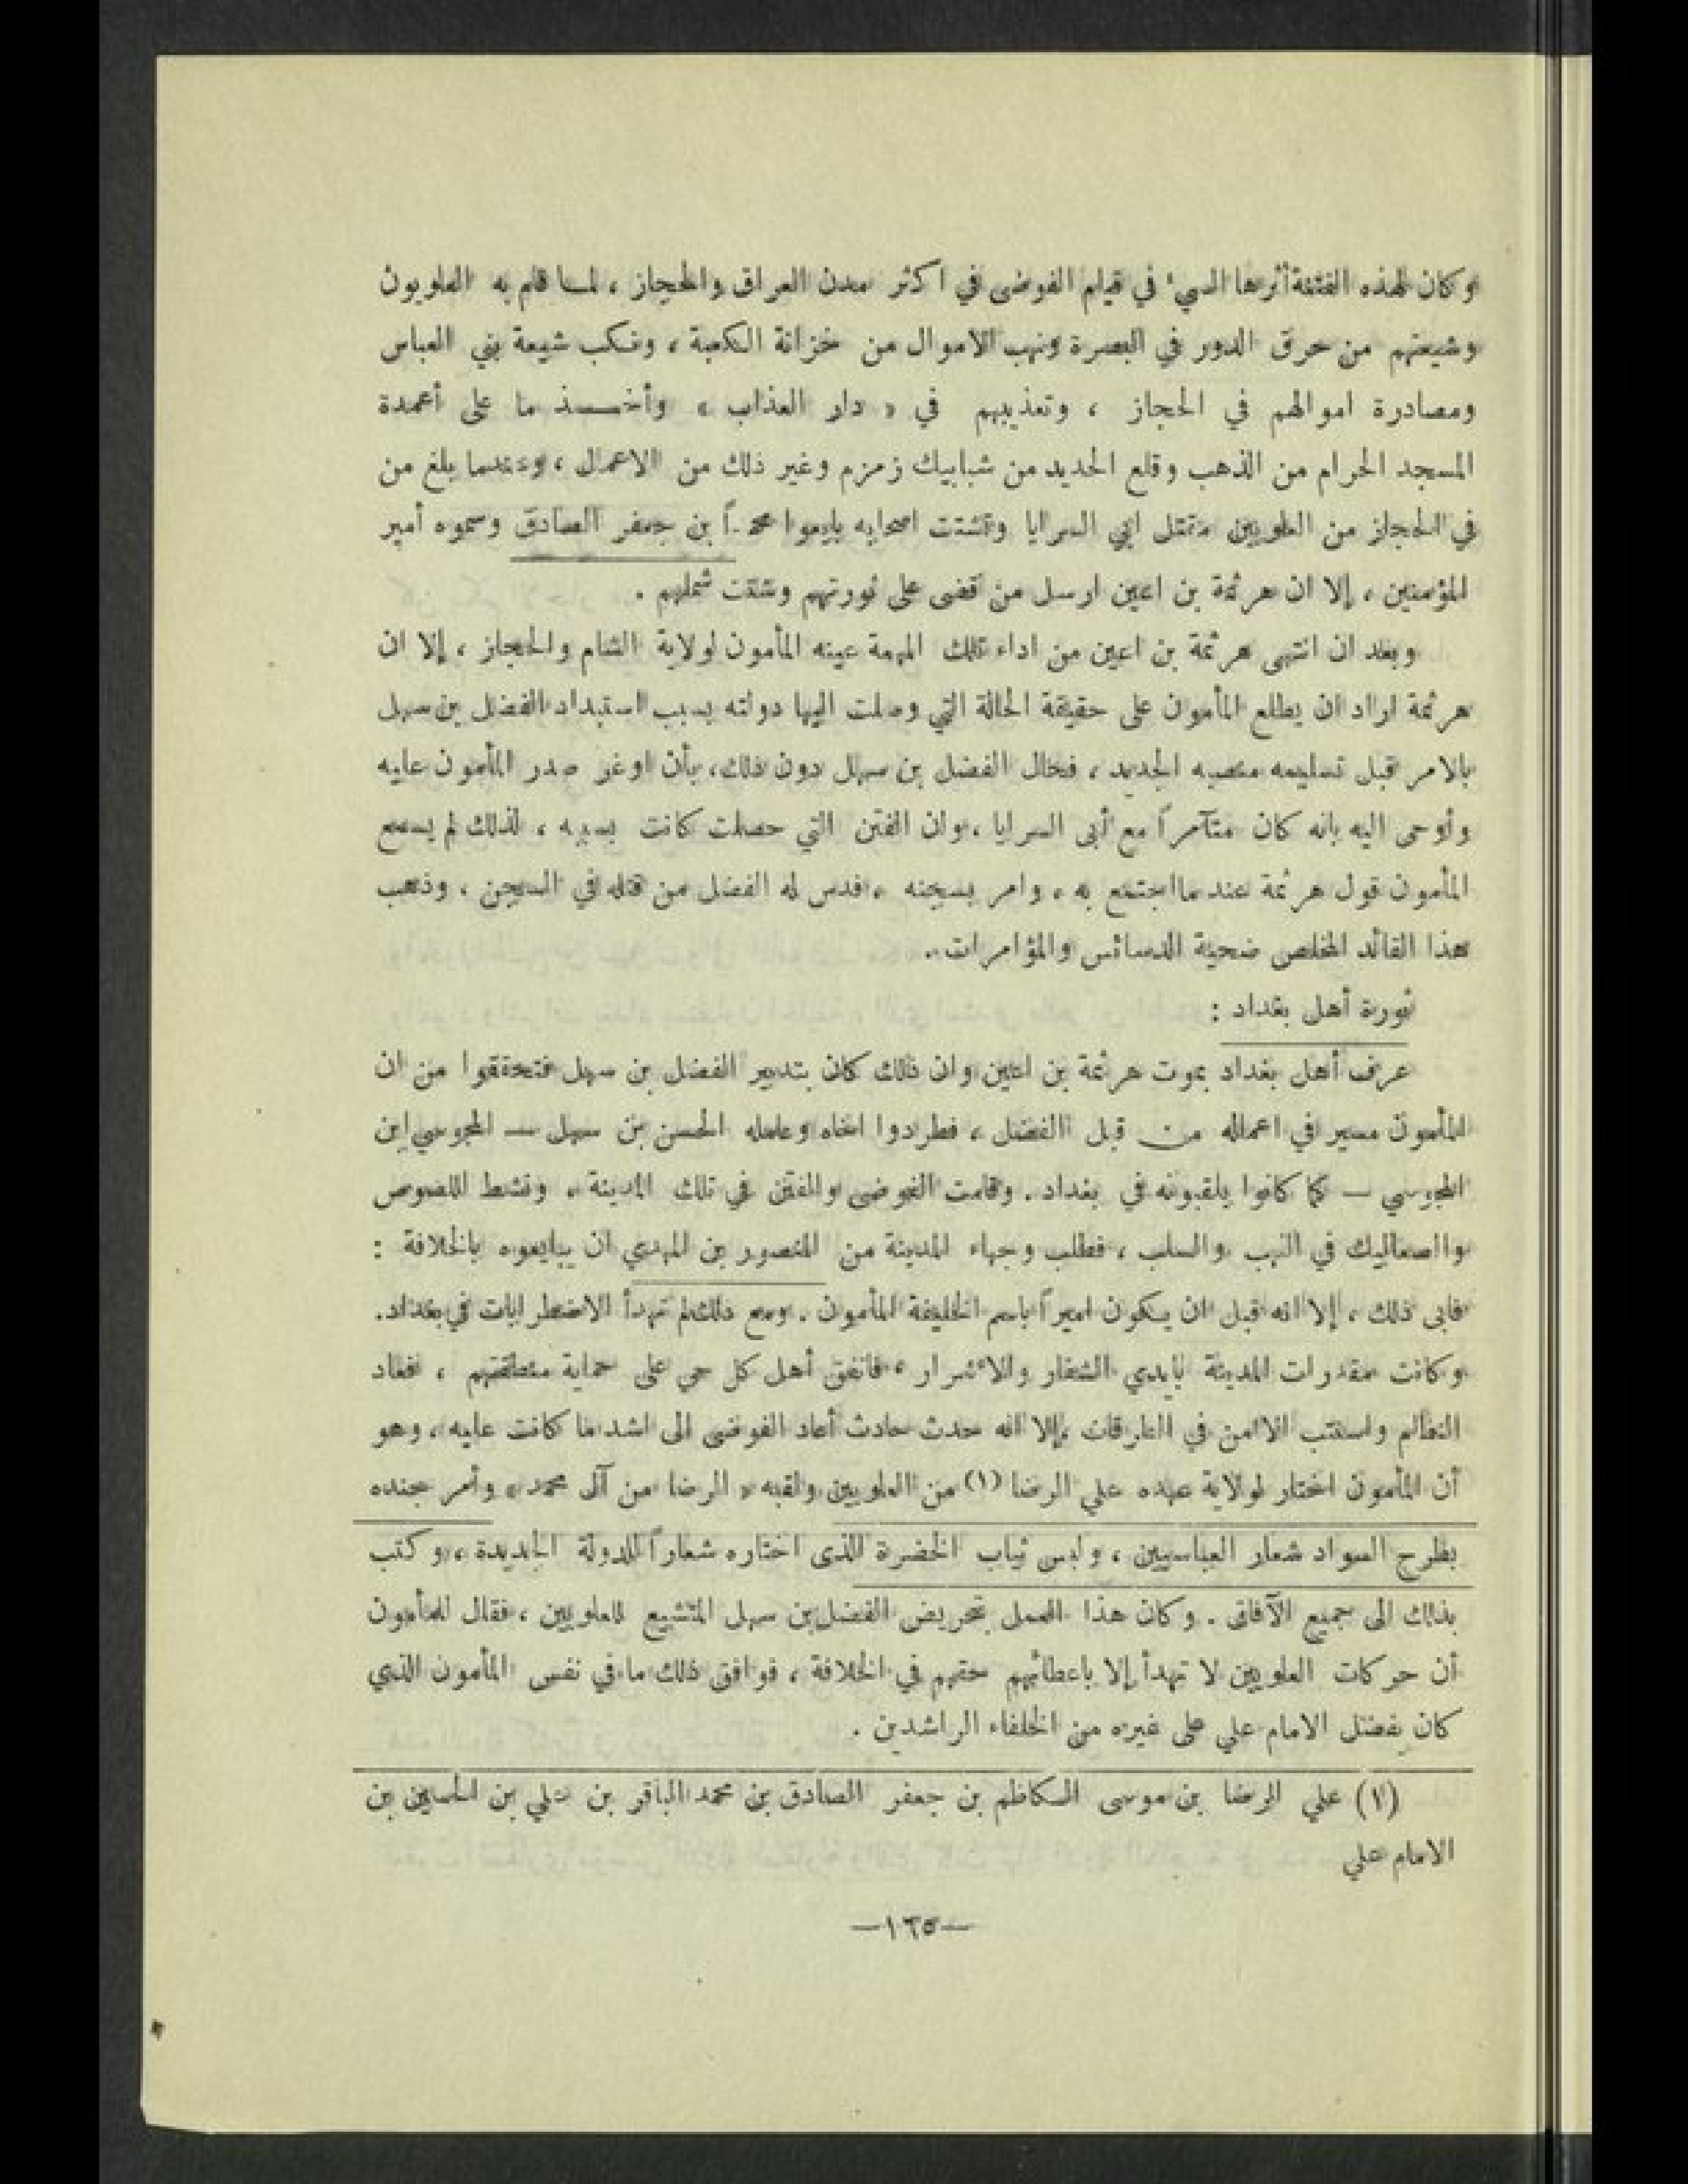 وكان لهذه الفتنة أثرها السيء في قيام الفوضى في اكثر مدن العراق والحجاز ، لما قام به العلويون
وشيعتهم من حرق الدور في البصرة ونهب الاموال من خزانة الكعبة ، ونكب شيعة بني العباس
ومصادرة اموالهم في الحجاز ، وتعذيبهم في « دار العذاب » وأخذ ما على أعمدة
المسجد الحرام من الذهب وقلع الحديد من شبابيك زمزم وغير ذلك من الاعمال ، وعندما بلغ من
في الحجاز من العلويين مقتل ابي السرايا وتشتت اصحابه بايعوا محمداً بن جعفر الصادق وسموه أمير
المؤمنين ، إلا ان هرثمة بن اعين ارسل من قضى على ثورتهم وشتت شملهم .
وبعد ان انتهى هرثمة بن اعين من اداء تلك المهمة عينه المأمون لولاية الشام والحجاز ، إلا ان
هرثمة اراد ان يطلع المأمون على حقيقة الحالة التي وصلت اليها دولته بسبب استبداد الفضل بن سهل
بالامر قبل تسليمه منصبه الجديد ، فحال الفضل بن سهل دون ذلك ، بأن اوغر صدر المأمون عليه
وأوحى اليه بانه كان متآمراً مع أبى السرايا ، وان الفتن التي حصلت كانت بسببه ، لذلك لم يسمع
المأمون قول هرثمة عندما اجتمع به ، وامر بسجنه ، فدس له الفضل من قتله في السجن ، وذهب
هذا القائد المخلص ضحية الدسائس والمؤامرات .
ثورة أهل بغداد :
عرف أهل بغداد بموت هرثمة بن اعين وان ذلك كان بتدبير الفضل بن سهل فتحققوا من ان
المأمون مسير في اعماله من قبل الفضل ، فطردوا اخاه وعامله الحسن بن سهل — المجوسي ابن
المجوسي — كما كانوا يلقبونه في بغداد . وقامت الفوضى والفتن في تلك المدينة ، ونشط اللصوص
والصعاليك في النهب والسلب ، فطلب وجهاء المدينة من المنصور بن المهدي ان يبايعوه بالخلافة :
فابى ذلك ، إلا انه قبل ان يكون اميراً باسم الخليفة المأمون . ومع ذلك لم تهدأ الاضطرابات في بغداد.
وكانت مقدرات المدينة بايدي الشطار والاشرار ، فاتفق أهل كل حي على حماية منطقتهم ، فعاد
النظام واستتب الامن في الطرقات ، إلا انه حدث حادث أعاد الفوضى الى اشد ما كانت عليه ، وهو
أن المأمون اختار لولاية عهده علي الرضا (١) من العلويين ولقبه « الرضا من آل محمد » وأمر جنده
بطرح السواد شعار العباسيين ، ولبس ثياب الخضرة الذى اختاره شعاراً للدولة الجديدة ، وكتب
بذلك الى جميع الآفاق . وكان هذا العمل بتحريض الفضل بن سهل المتشيع للعلويين ، فقال للمأمون
أن حركات العلويين لا تهدأ إلا باعطائهم حقهم في الخلافة ، فوافق ذلك ما في نفس المأمون الذي
كان يفضل الامام علي على غيره من الخلفاء الراشدين .
(١) علي الرضا بن موسى الكاظم بن جعفر الصادق بن محمد الباقر بن علي بن الحسين بن
الامام علي
—١٦٥—